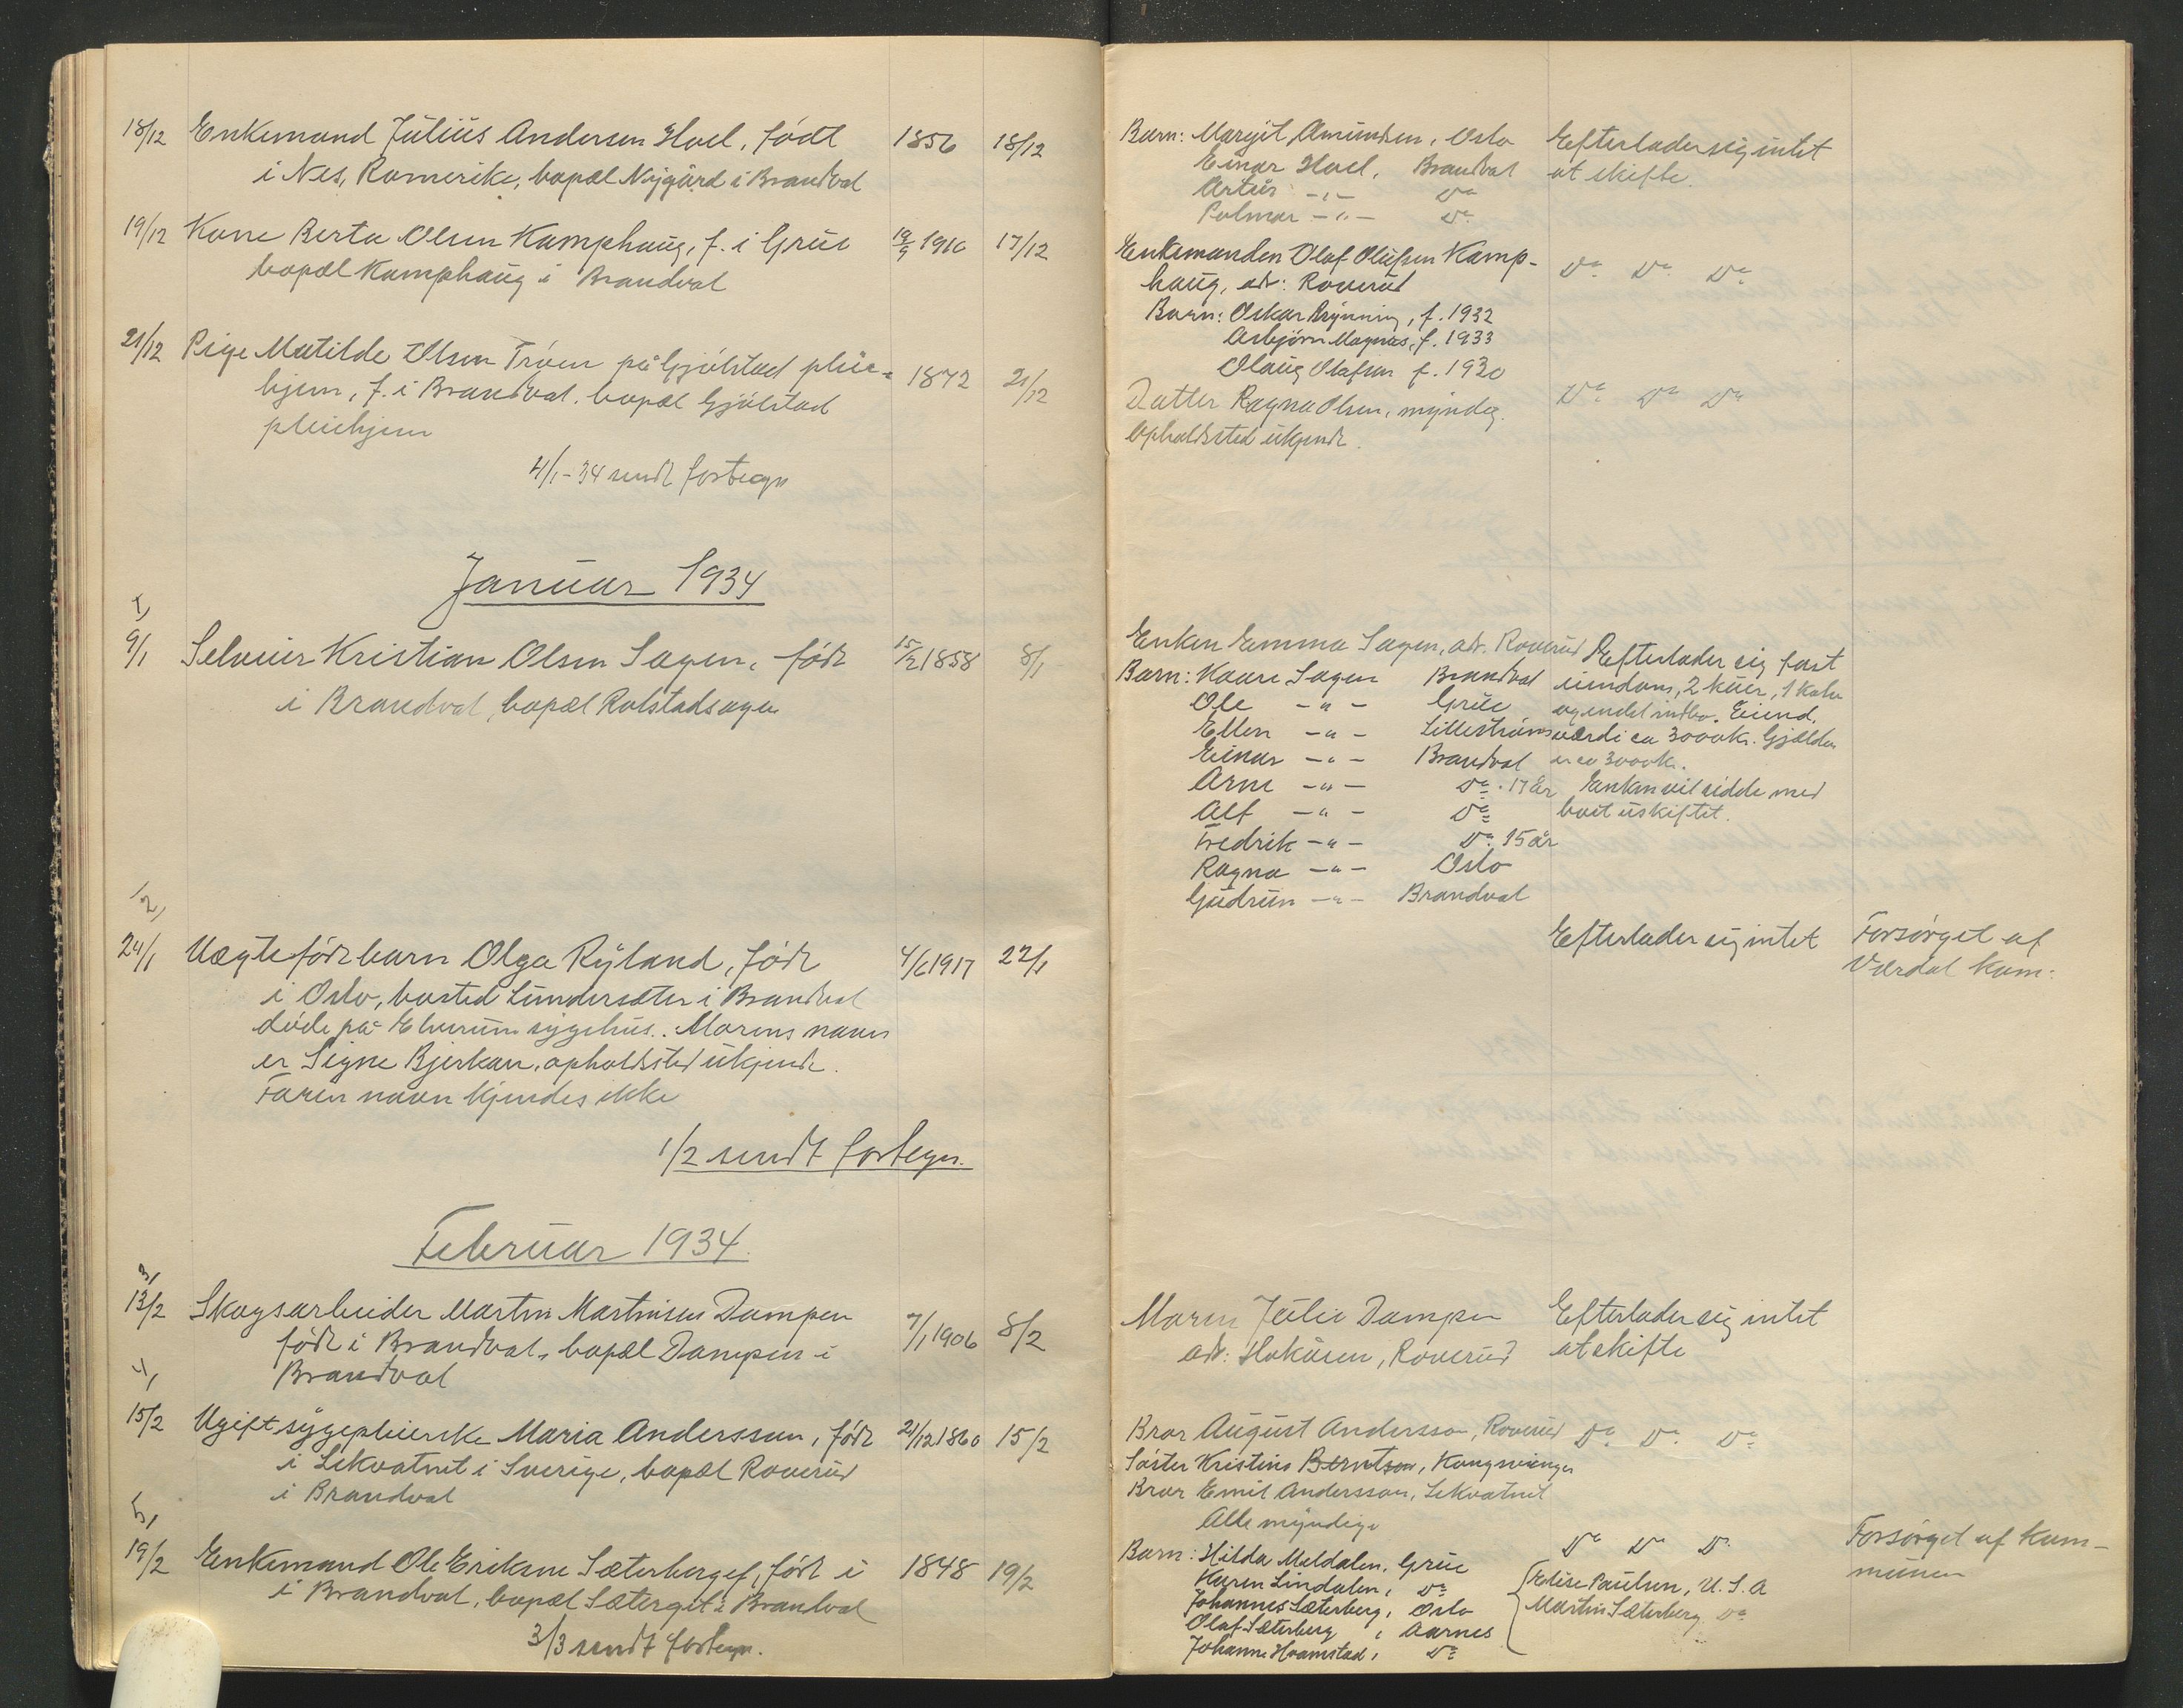 18/12 Enkemand Julius Andersen Hoel, født 1856 18/12
i Nes, Romerike, bopæl Nygård i Brandval
19/12 Kone Berta Olsen Kamphaug, f. i Grue 19/9 1910 17/12
bopæl Kamphaug i Brandval
21/12 Pige Matilde Olsen Trøen på Gjølstad pleie- 1872 21/12
hjem, f. i Brandval. bopæl Gjølstad
pleiehjem
4/1-34 sendt fortegn
Januar 1934
1,
9/1 Selveier Kristian Olsen Sagen, født 15/2 1858 8/1
i Brandval, bopæl Rolstadsagen
2,
24/1 Uægtefødt barn Olga Ryland, født 4/6 1917 22/1
i Oslo, bosted Lundersæter i Brandval
døde på Elverum sygehus. Morens navn
er Signe Bjerkan, opholdsted ukjendt.
Faren navn kjendes ikke
1/2 sendt fortegn.
Februar 1934.
3,
13/2 Skogsarbeider Martin Martinsen Dampen 7/1 1906 8/2
født i Brandval, bopæl Dampen i
Brandval
4,
15/2 Ugift sygepleierske Maria Andersson, født 21/12 1860 15/2
i Lekvatnet i Sverige, bopæl Roverud
i Brandval
5,
19/2 Enkemand Ole Eriksen Sæterberget, født i 1848 19/2
i Brandval, bopæl Sæterget i Brandval
3/3 sendt fortegn.
Barn: Margit Amundsen, Oslo Efterlader sig intet
Einar Hoel, Brandval at skifte.
Artur -"- Do
Palmar -"- Do
Enkemanden Olaf Olufsen Kamp- Do Do Do
haug, adr: Roverud
Barn: Oskar Brynning, f. 1932
Asbjørn Magnus, f. 1933
Olaug Olafsen f. 1930
Datter Ragna Olsen, myndig. Do Do Do
Opholdsted ukjendt.
Enken Emma Sagen, adr. Roverud Efterlader sig fast
Barn: Kaare Sagen Brandval eiendom, 2 kuer, 1 kalv
Ole -"- Grue og endel indbo. Eiend.
Ellen -"- Lillestrøm værdi ca 3000 kr. Gjælden
Einar -"- Brandval er ca 3000 kr.
Arne -"- Do. 17 år Enken vil sidde med
Alf -"- Do boet uskiftet.
Fredrik -"- Do. 15 år
Ragna -"- Oslo
Gudrun -"- Brandval
Efterlader sig intet Forsørget af
Værdal kom:
Moren Julie Dampen Efterlader sig intet
adr: Hokåsen, Roverud at skifte
Bror August Andersson, Roverud Do Do Do
Søster Kristine Berntsen, Kongsvinger
Bror Emil Andersson, Lekvatnet
Alle myndige
Barn: Hilda Meldalen, Grue Do Do Do Forsørget af kom-
Karen Lindalen, Do Elise Paulsen, U.S.A munen
Johannes Sæterberg, Oslo Martin Sæterberg Do
Olaf Sæterberg, Aarnes
Johanne Hvamstad, Do